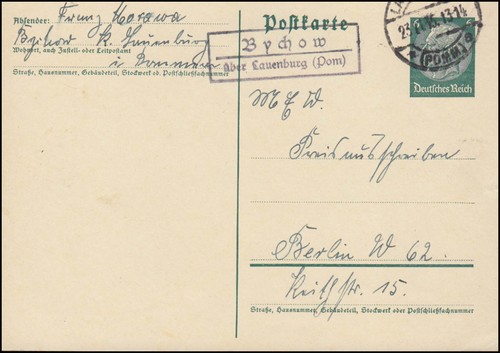 Absender: Franz
Bychow Kr. Lauenburg
Wohnort, auch Zustell- oder Leitpostamt
in Pommern
Straße, Hausnummer, Gebäudeteil, Stockwerk od. Postschließfachnummer
Postkarte
Bychow
über Lauenburg (Pom)
(POMM)
Deutsches Reich
M E W.
Preisausschreiben
Berlin W 62.
Keithstr. 15.
Straße, Hausnummer, Gebäudeteil, Stockwerk oder Postschließfachnummer